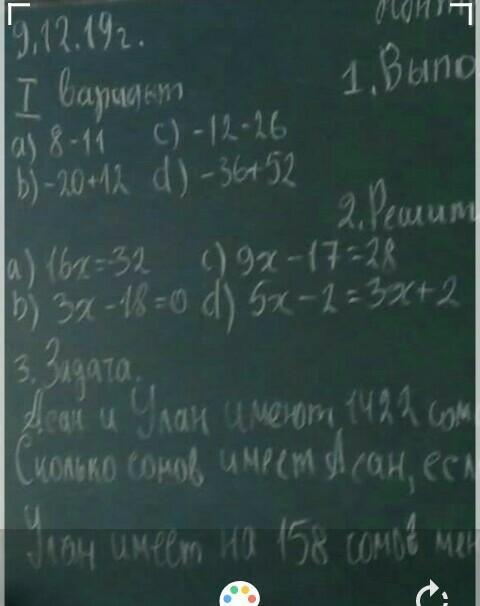 9.12.19г.
I вариант
1. Выпо
a) 8-11 c) -12-26
b) -20+12 d) -36+52
2. Решит
a) 16x=-32 c) 9x-17=28
b) 3x-18=0 d) 5x-2=3x+2
3. Задача.
Асан и Улан имеют 1422 сом
Сколько сомов имеет Асан, есл
Улан имеет на 158 сомов мен